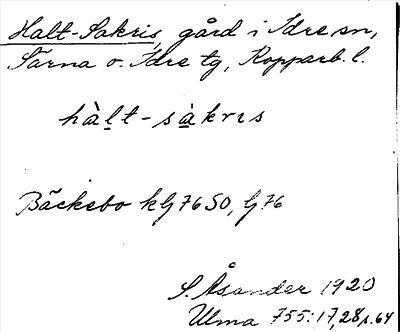 Halt-Sakris, gård i Idre sn,
Särna o. Idre tg, Kopparb. l.
hàl̠t-sà̠krıs
Bäckebo kG 7650, G 76
S. Åsander 1920
Ulma 755:17, 28, s. 64